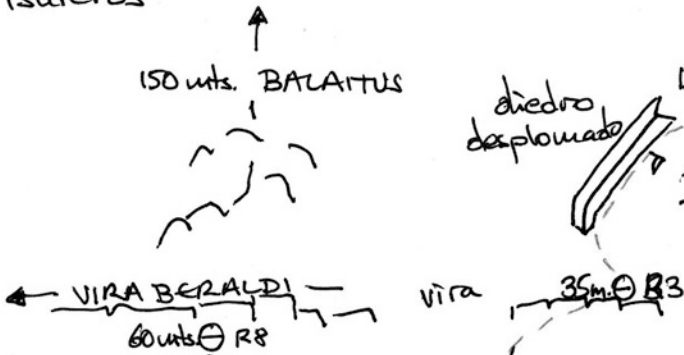 150 mts. BALAITUS
diedro
desplomado
VIRA BERALDI
60 mts. R8
vira
35m. R3